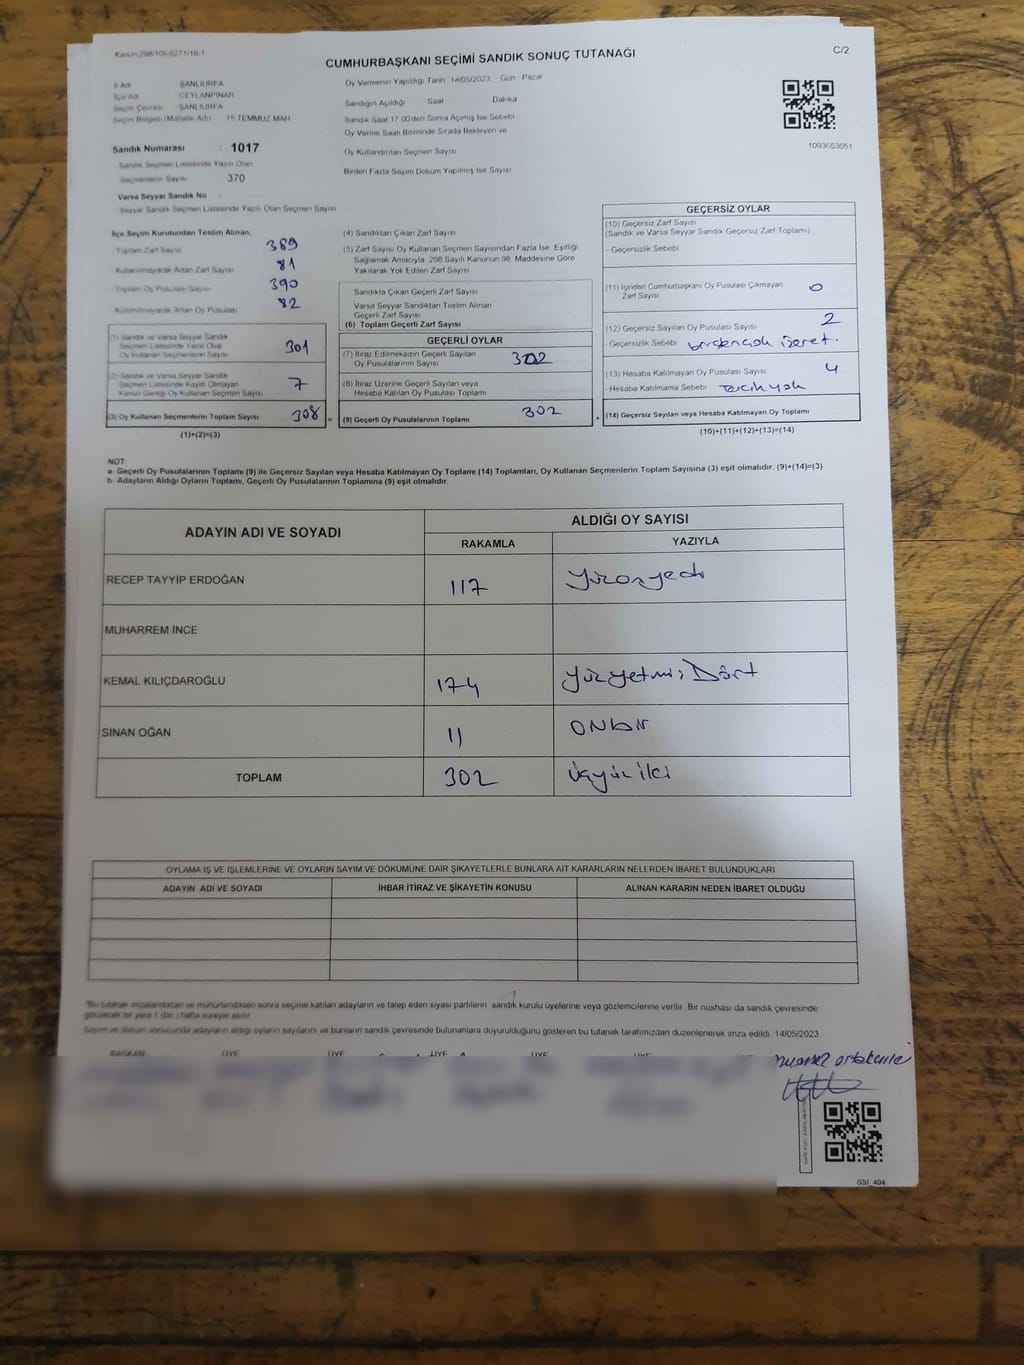 Kanun:298/105,6271/18-1
CUMHURBAŞKANI SEÇİMİ SANDIK SONUÇ TUTANAĞI
C/2
İl Adı : ŞANLIURFA
İlçe Adı : CEYLANPINAR
Seçim Çevresi : ŞANLIURFA
Seçim Bölgesi (Mahalle Adı) : 15 TEMMUZ MAH
Oy Vermenin Yapıldığı Tarih 14/05/2023 Gün : Pazar
Sandığın Açıldığı Saat Dakika
Sandık Saat 17.00'den Sonra Açımış İse Sebebi
Oy Verme Saati Bitiminde Sırada Bekleyen ve
Oy Kullandırılan Seçmen Sayısı
Birden Fazla Sayım Döküm Yapılmış İse Sayısı
1093653051
Sandık Numarası : 1017
Sandık Seçmen Listesinde Yazılı Olan
Seçmenlerin Sayısı 370
Varsa Seyyar Sandık No
Seyyar Sandık Seçmen Listesinde Yazılı Olan Seçmen Sayısı
İlçe Seçim Kurulundan Teslim Alınan;
Toplam Zarf Sayısı 389
Kullanılmayarak Artan Zarf Sayısı 81
Toplam Oy Pusulası Sayısı 390
Kullanılmayarak Artan Oy Pusulası 82
(1) Sandık ve Varsa Seyyar Sandık
Seçmen Listesinde Yazılı Olup
Oy Kullanan Seçmenlerin Sayısı 301
(2) Sandık ve Varsa Seyyar Sandık
Seçmen Listesinde Kayıtlı Olmayan
Kanun Gereği Oy Kullanan Seçmen Sayısı 7
(3) Oy Kullanan Seçmenlerin Toplam Sayısı 308 =
(1)+(2)=(3)
(4) Sandıktan Çıkan Zarf Sayısı
(5) Zarf Sayısı Oy Kullanan Seçmen Sayısından Fazla İse, Eşitliği
Sağlamak Amacıyla, 298 Sayılı Kanunun 98. Maddesine Göre
Yakılarak Yok Edilen Zarf Sayısı
Sandıkta Çıkan Geçerli Zarf Sayısı
Varsa Seyyar Sandıktan Teslim Alınan
Geçerli Zarf Sayısı
(6) Toplam Geçerli Zarf Sayısı
GEÇERLİ OYLAR
(7) İtiraz Edilmeksizin Geçerli Sayılan
Oy Pusulalarının Sayısı 302
(8) İtiraz Üzerine Geçerli Sayılan veya
Hesaba Katılan Oy Pusulaları Toplamı
(9) Geçerli Oy Pusulalarının Toplamı 302 +
GEÇERSİZ OYLAR
(10) Geçersiz Zarf Sayısı
(Sandık ve Varsa Seyyar Sandık Geçersiz Zarf Toplamı)
- Geçersizlik Sebebi
(11) İçinden Cumhurbaşkanı Oy Pusulası Çıkmayan
Zarf Sayısı 0
(12) Geçersiz Sayılan Oy Pusulası Sayısı 2
- Geçersizlik Sebebi birdençok işaret.
(13) Hesaba Katılmayan Oy Pusulası Sayısı 4
Hesaba Katılmama Sebebi Tercih yok
(14) Geçersiz Sayılan veya Hesaba Katılmayan Oy Toplamı
(10)+(11)+(12)+(13)=(14)
NOT:
a- Geçerli Oy Pusulalarının Toplamı (9) ile Geçersiz Sayılan veya Hesaba Katılmayan Oy Toplamı (14) Toplamları, Oy Kullanan Seçmenlerin Toplam Sayısına (3) eşit olmalıdır. (9)+(14)=(3)
b- Adayların Aldığı Oyların Toplamı, Geçerli Oy Pusulalarının Toplamına (9) eşit olmalıdır.
ADAYIN ADI VE SOYADI
ALDIĞI OY SAYISI
RAKAMLA YAZIYLA
RECEP TAYYİP ERDOĞAN 117 Yüzonyedi
MUHARREM İNCE
KEMAL KILIÇDAROĞLU 174 YüzyetmişDört
SİNAN OĞAN 11 ONbir
TOPLAM 302 üçyüziki
OYLAMA İŞ VE İŞLEMLERİNE VE OYLARIN SAYIM VE DÖKÜMÜNE DAİR ŞİKAYETLERLE BUNLARA AİT KARARLARIN NELERDEN İBARET BULUNDUKLARI
ADAYIN ADI VE SOYADI İHBAR İTİRAZ VE ŞİKAYETİN KONUSU ALINAN KARARIN NEDEN İBARET OLDUĞU
*Bu tutanak imzalandıktan ve mühürlendikten sonra seçime katılan adayların ve talep eden siyasi partilerin sandık kurulu üyelerine veya gözlemcilerine verilir. Bir nüshası da sandık çevresinde
görülecek bir yere 1 (bir ) hafta süreyle asılır.
Seçim ve döküm sonucunda adayların aldığı oyların sayılarını ve bunların sandık çevresinde bulunanlara duyurulduğunu gösteren bu tutanak tarafımızdan düzenlenerek imza edildi. 14/05/2023
BAŞKAN ÜYE ÜYE ÜYE ÜYE ÜYE
SSI_404